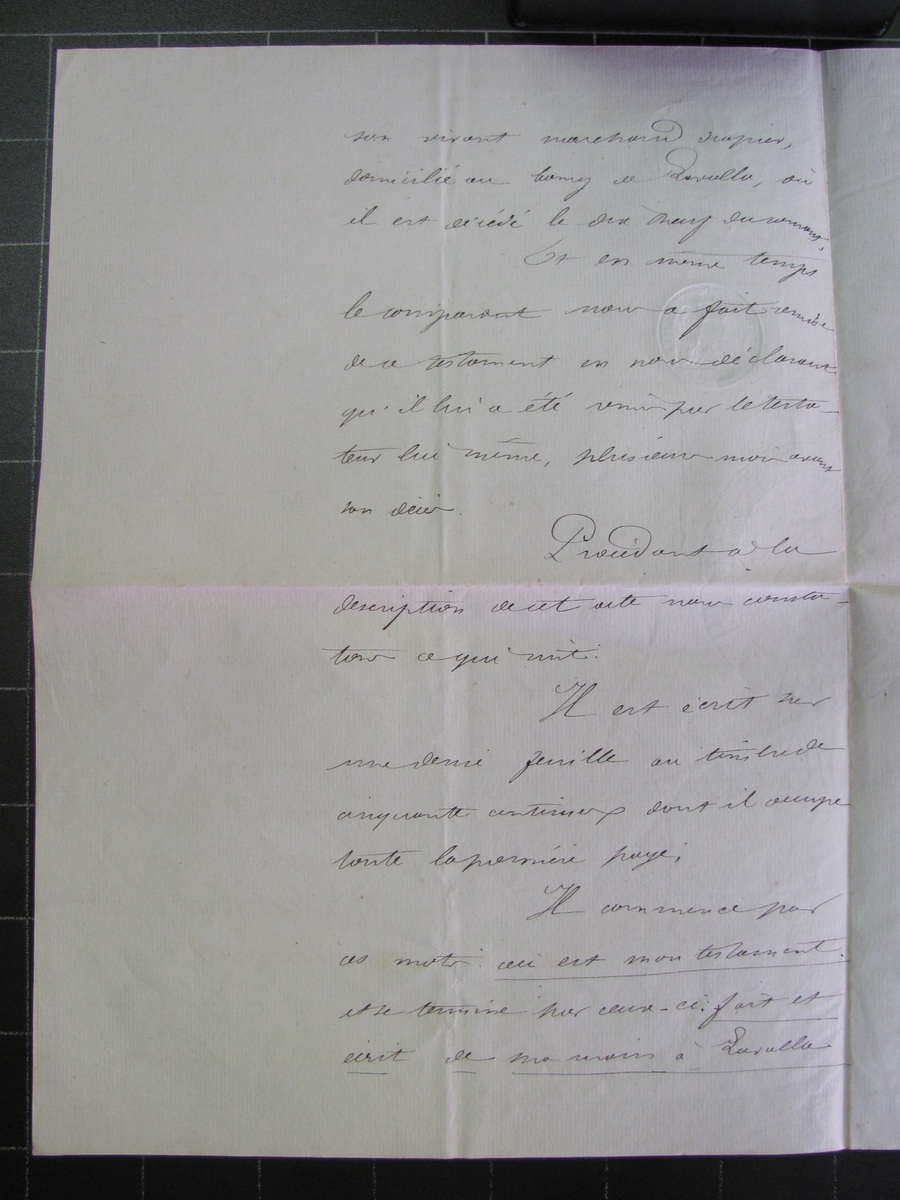 son vivant marchand drapier,
domicilié au bourg de Lavalla, où
il est décédé le dix neuf du courant,
Et en même temps
le comparant nous a fait remise
de ce testament en nous déclarant
qu'il lui a été remis par le testa-
teur lui même, plusieurs mois avant
son décès.
Procédant à la
description de cet acte nous consta-
tons ce qui suit:
Il est écrit sur
une demi feuille au timbre de
cinquante centimes dont il occupe
toute la première page;
Il commence par
ces mots: ceci est mon testament.
et se termine par ceux-ci: fait et
écrit de ma main à Lavalla